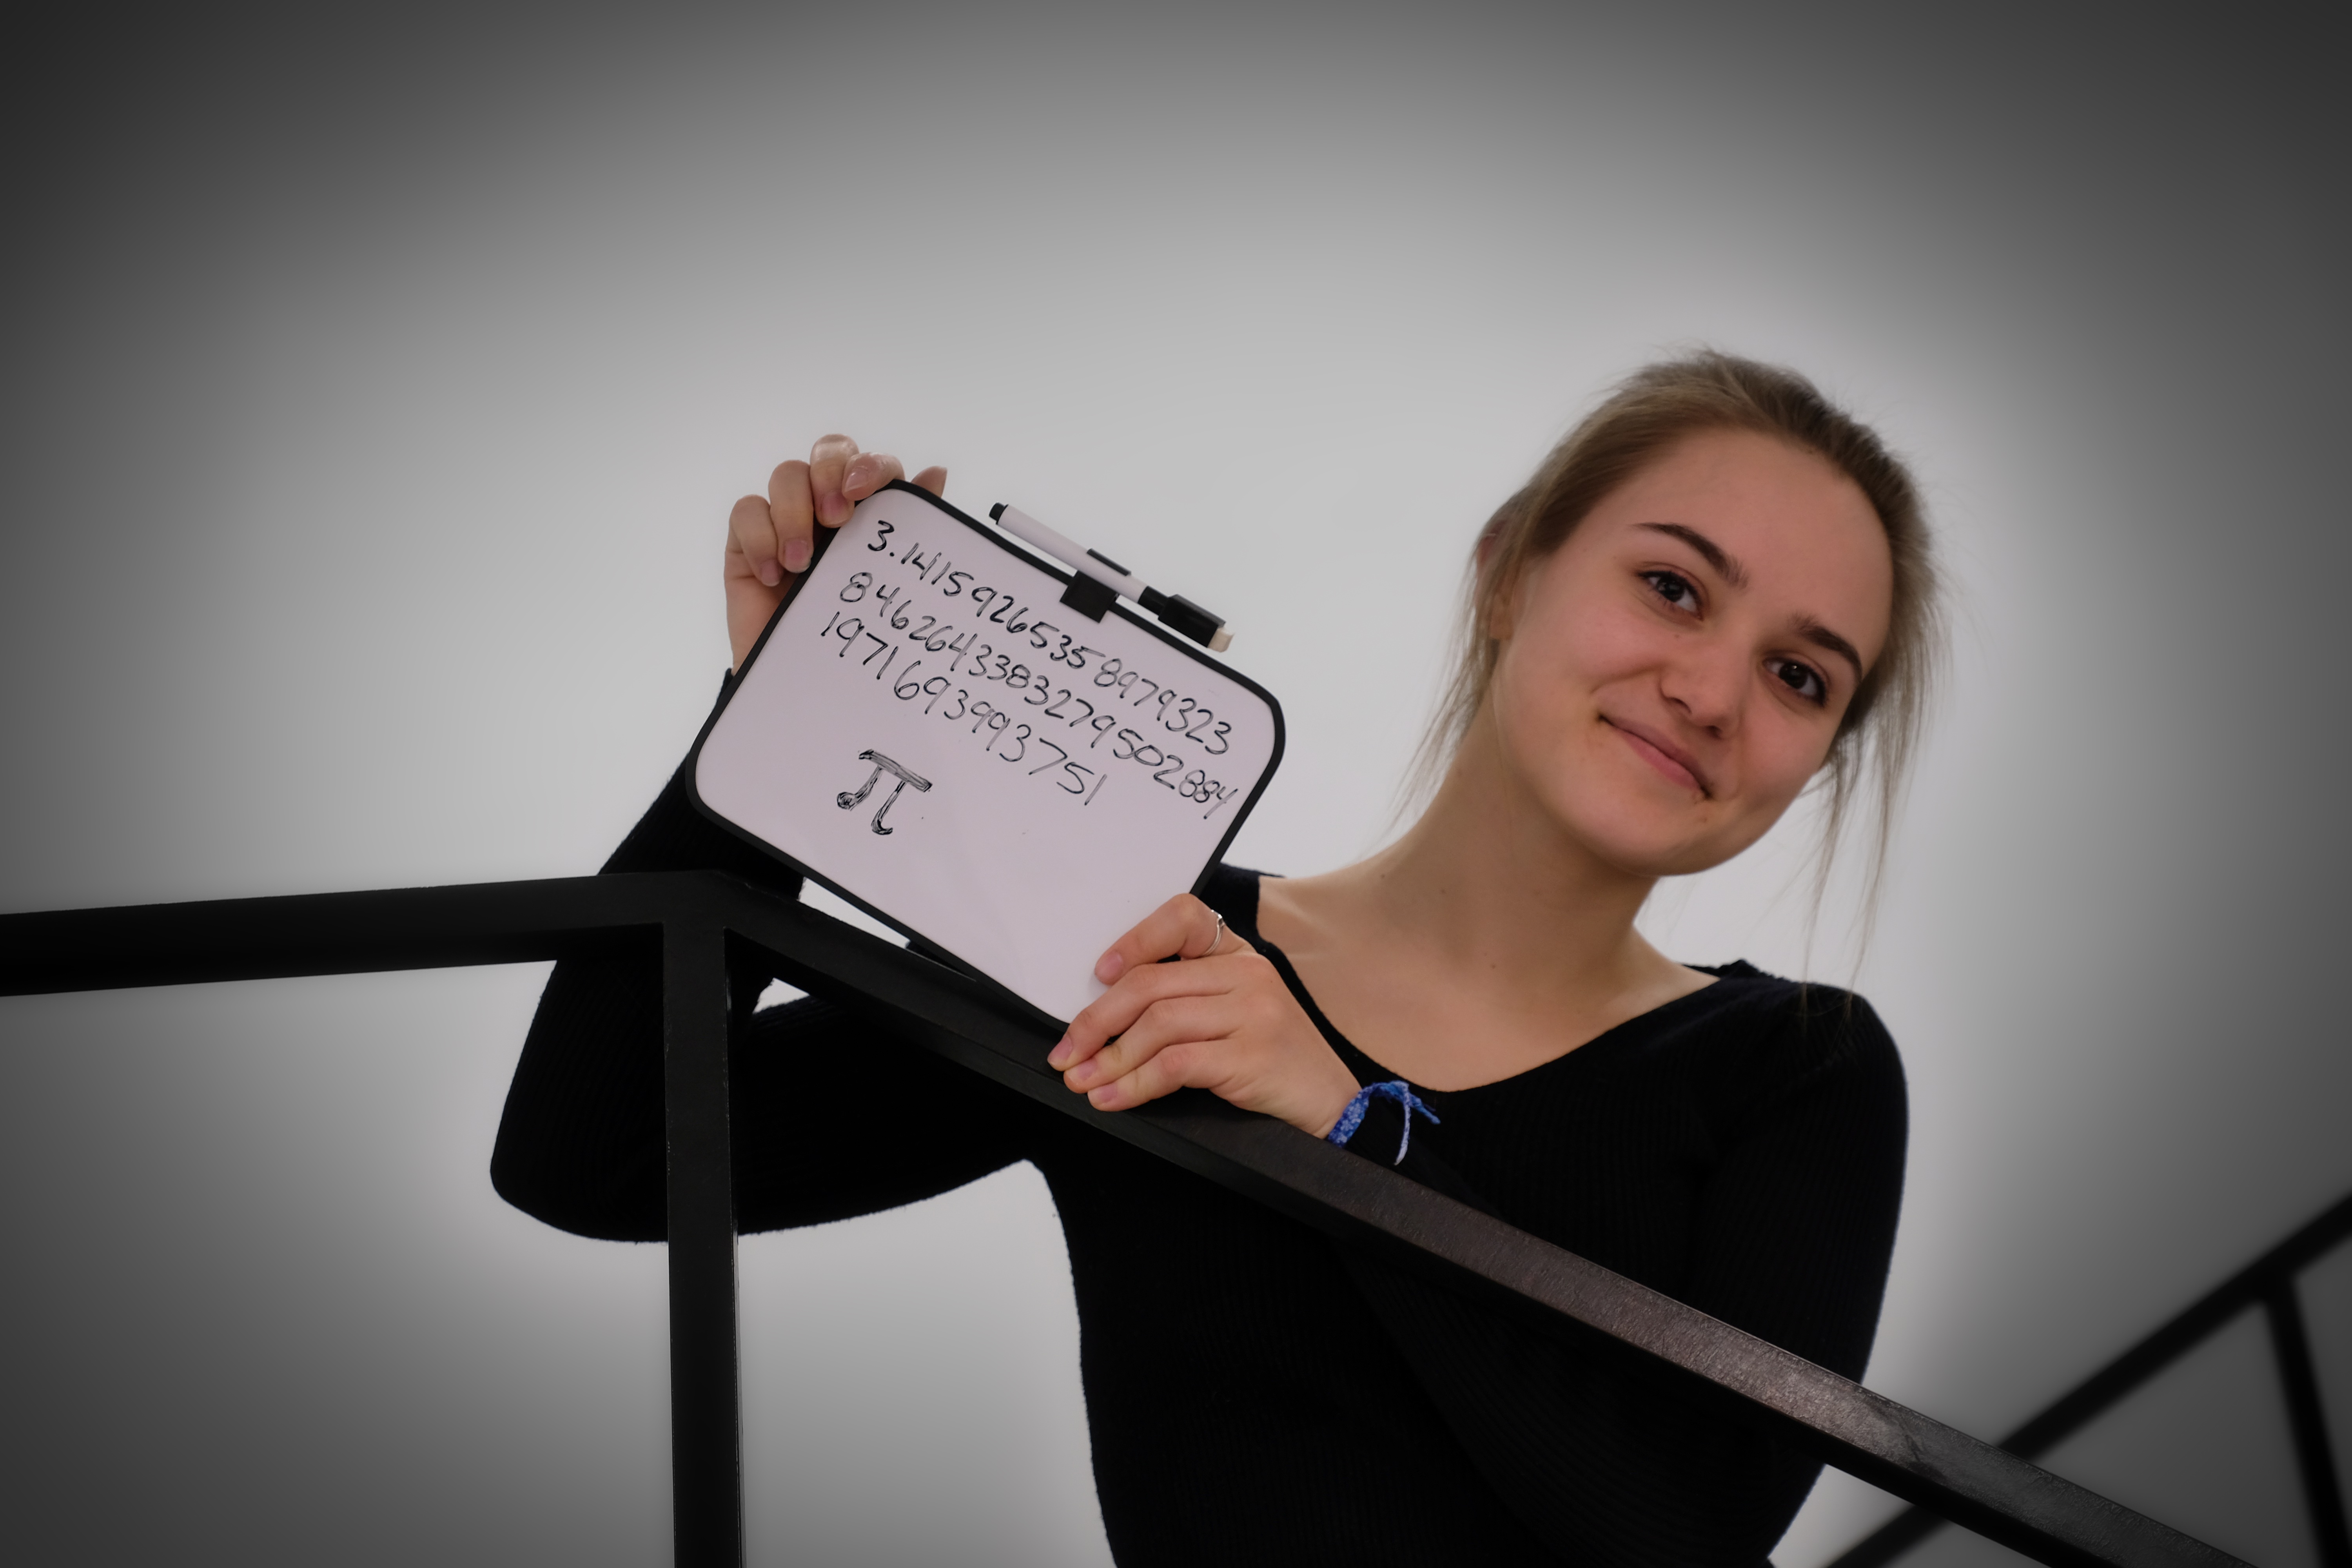 3.14159265358979323
8462643383279502884
1971693993751
π